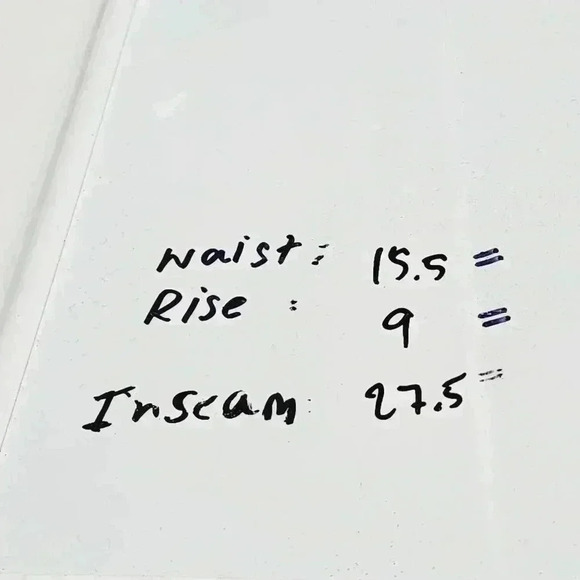 waist: 15.5 =
Rise : 9 =
Inseam: 27.5 =